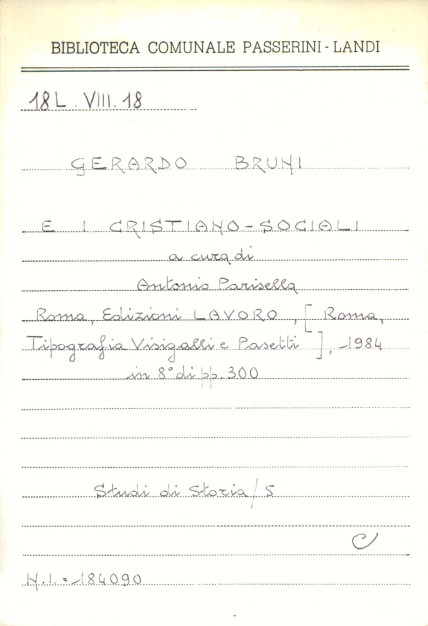 BIBLIOTECA COMUNALE PASSERINI-LANDI
18L.VIII.18
GERARDO BRUNI
E I CRISTIANO-SOCIALI
a cura di
Antonio Parisella
Roma, Edizioni LAVORO, [Roma,
Tipografia Visigalli e Pasetti], 1984
in 8° di pp. 300
Studi di Storia/5
C
N.I. 184090